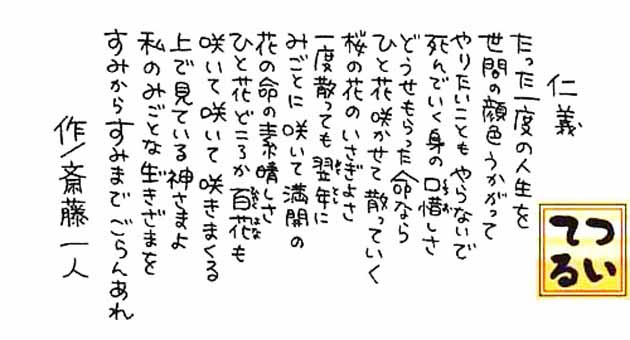 仁義
たった一度の人生を
世間の顔色うかがって
やりたいことも やらないで
死んでいく身の口惜しさ
どうせもらった命なら
ひと花咲かせて 散っていく
桜の花のいさぎよさ
一度散っても 翌年に
みごとに 咲いて 満開の
花の命の素晴しさ
ひと花どころか 百花も
咲いて 咲いて 咲きまくる
上で見ている 神さまよ
私のみごとな 生きざまを
すみから すみまで ごらんあれ
作/斎藤一人
ついてる